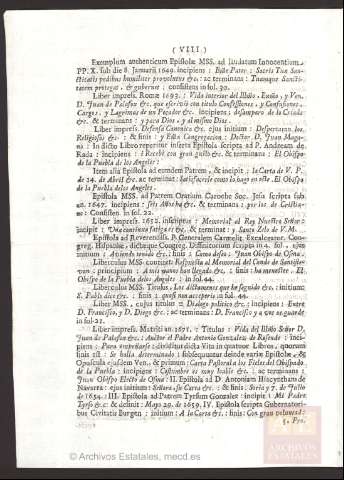 ( VIII. )
Exemplum authenticum Epistolæ MSS. ad laudatum Innocentium
PP. X. sub die 8. Januarii 1649. incipiens : Biſte Pater : Sacris Tuæ San-
ctitatis pedibus humiliter provolutus &c. : ac terminans : Tuamque Sancti-
tatem protegat, & gubernet : conſiſtens in fol. 30.
Liber impreſſ. Romæ 1693. : Vida interior del Illmo. Exmo, y Ven.
D. Juan de Palafox &c. que eſcrivió con titulo Confeſſiones, y Confuſiones,
Cargos, y Lagrimas de un Pecador &c. incipiens : deſamparo de la Criada
&c. & terminans : y para Dios, y al miſmo Dios.
Liber impreſſ. Defenſa Canonica &c. ejus initium : Deſpertaron los
Religioſos &c. & finis : y Eſta Congregacion : Doctor D. Juan Magu-
In dicto Libro reperitur inſerta Epiſtola ſcripta ad P. Andream de
Rada : incipiens : Recebi con gran guſto &c. & terminans : El Obiſpo
de la Puebla de los Angeles.
Item alia Epiſtola ad eumdem Patrem, & incipit : la Carta de V. P.
de 24. de Abril &c. ac terminat : Satisfacerle como lo hago en eſta. El Obiſpo
de la Puebla delos Angeles.
Epiſtola MSS. ad Patrem Oratium Caroche Soc. Jeſu ſcripta ſub
an. 1647. incipiens : &c. & terminans :
Conſiſten. in fol. 22.
Liber impreſſ. 1652. inſcriptus : Memorial al Rey Nueſtro Señor : in-
cipit : Una continua fatiga &c. &c. terminat : y Santo Zelo de V. M.
Epiſtola ad Reverendiſſ. P. Generalem Carmelit. Excalceator. Con-
greg. Hiſpaniæ, dictæque Congreg. Diffinitorium ſcriptis in 4. fol., ejus
initium : Aviendo tenido &c. : finis : Como deſea : Juan Obiſpo de Oſma.
Liberculus MSS. continet Reſpueſta al Memorial del Conde de Santiſte-
van : principium : A mis manos han llegado &c. : finis : ha meneſter. El
Obiſpo de la Puebla delos Angeles : in fol. 44.
Liberculus MSS. Titulus, Los dictamenes que he ſeguido &c. : initium :
S. Pablo dice &c. : finis : quoſi non acceperis in fol. 44.
Liber MSS., cujus titulus : Dialogo politico &c. : incipiens : Entre
D. Franciſco, y D. Diego &c. : ac terminans : D. Franciſco y a que os guarde
in fol. 22.
Liber impreſſ. Matriti an 1671. : Titulus : Vida del Illmo Señor D.
Juan de Palafox &c. : Autor el Padre Antonio Gonzalez de Roſende : inci-
piens : Para enſeñanza : dividitur dicta Vita in quatuor Libros, quorum
finis eſt : Se halla determinado : ſubſequuntur deinde variæ Epiſtolæ, &
Opuſcula ejuſdem Ven., & primum : Carta Paſtoral à los Fieles del Obiſpado
de la Puebla : incipiens : Coſtumbre es muy hable &c. : ac terminans :
Juan Obiſpo Electo de Oſma : II. Epiſtola ad D. Antoniam Hiacyntham de
Navarra : ejus initium : Señora, ſu Carta &c. : & finis : Soria y 7. de Julio
de 1654. : III. Epiſtola ad Patrem Tyrſum Gonzalez : incipit : Mi Padre
Tyrſo &c. : & deſinit : Mayo 29. de 1659. IV. Epiſtola ſcripta Gubernatori-
bus Civitatis Burgen. : initium : A la Carta &c. : finis : Con gran voluntad :
ARCHIVOS
ESTATALES
© Archivos Estatales, mecd.es